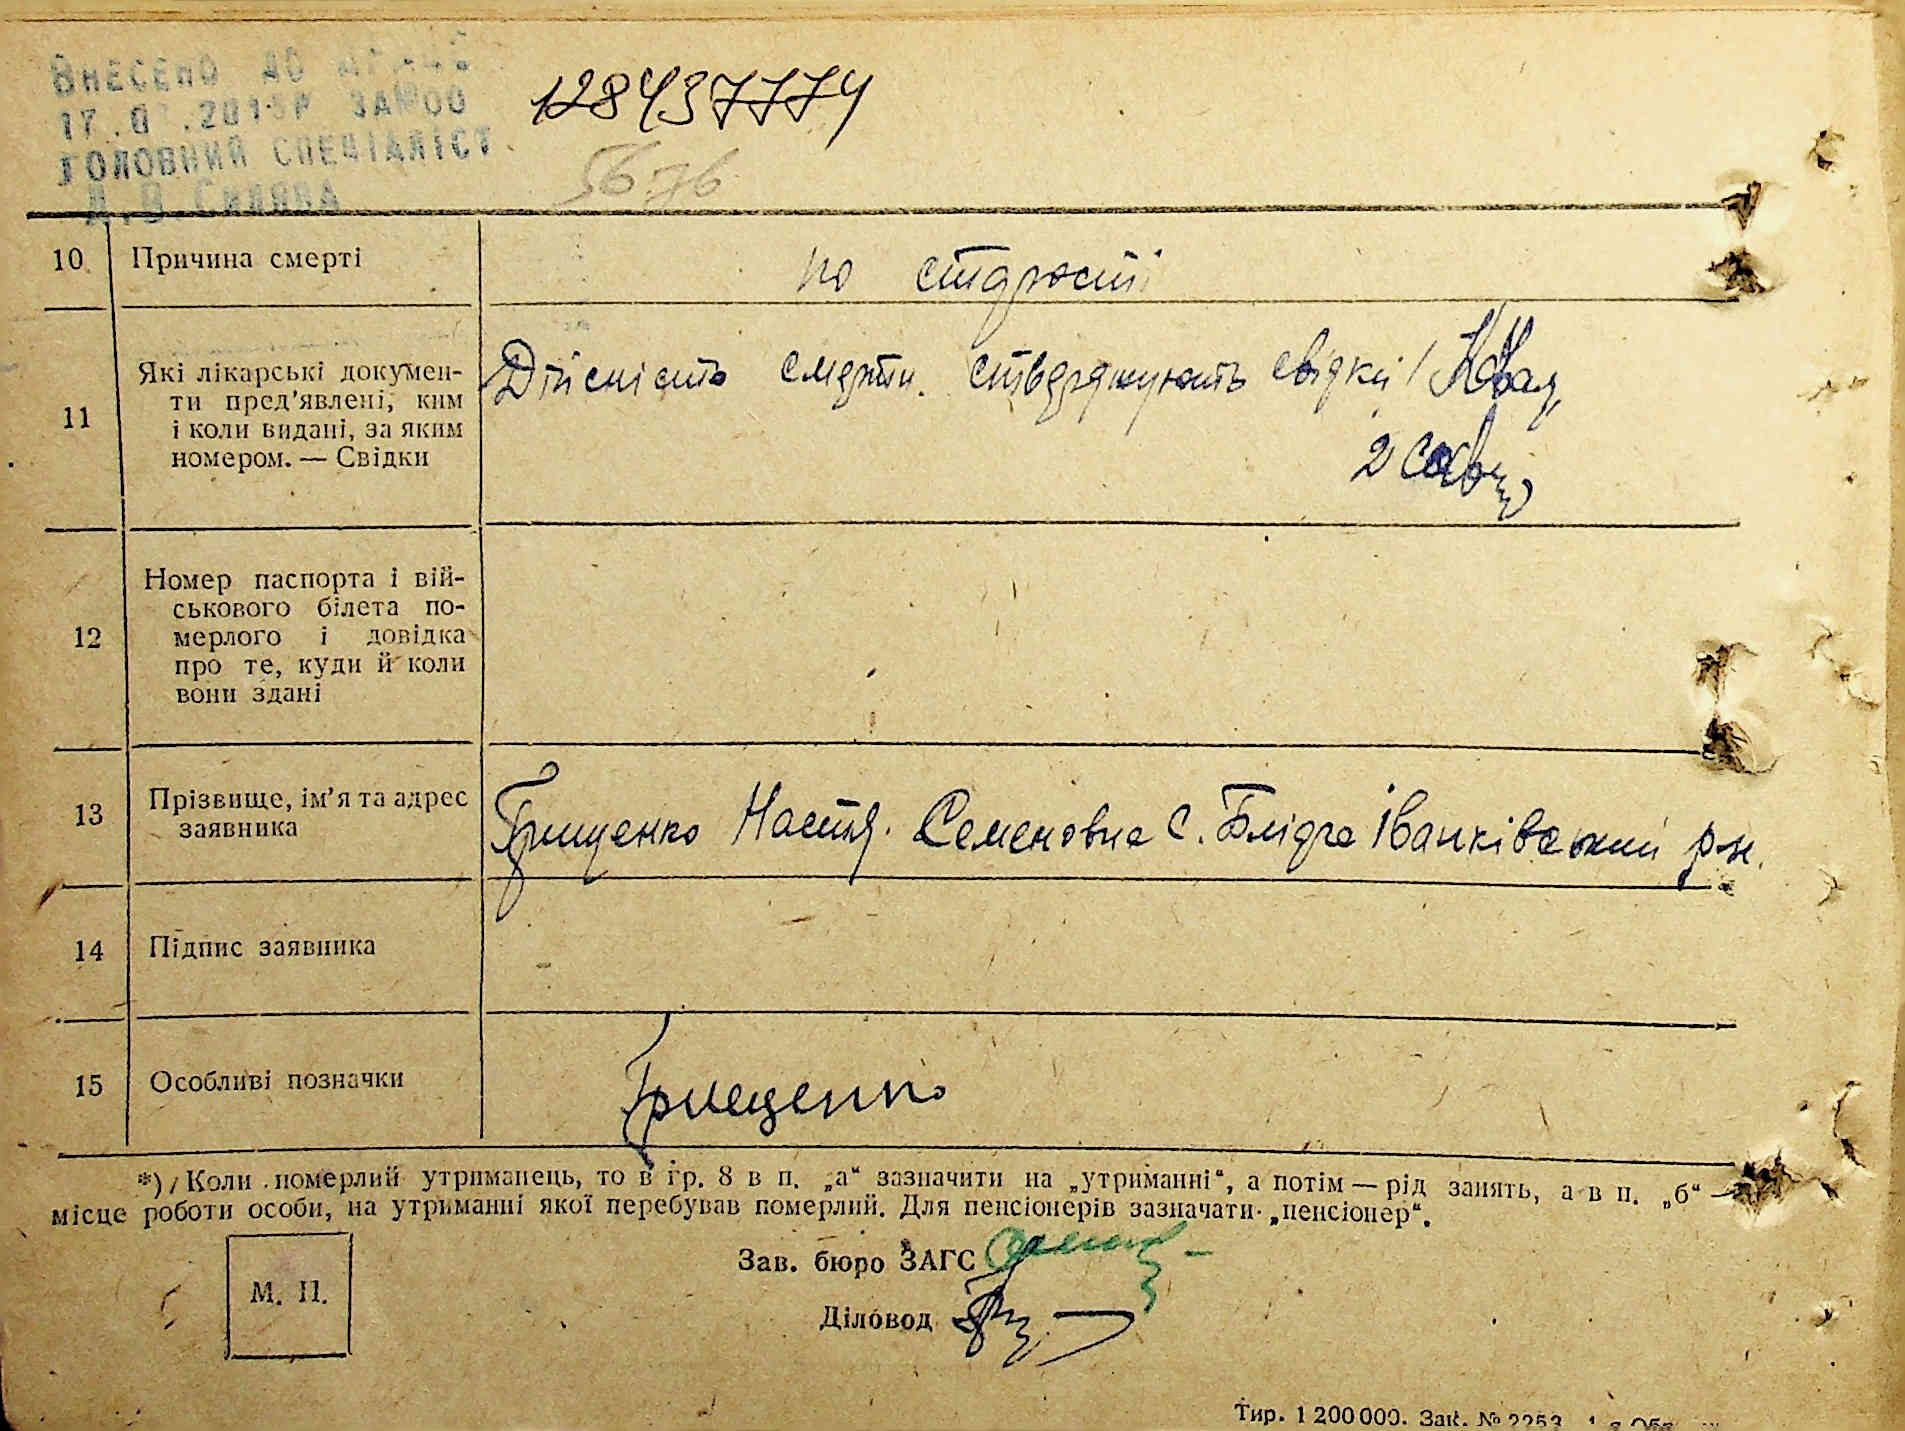 Внесено до
ЗА №00
Головний спеціаліст
А.В. Силява
128437774
5676
10 Причина смерті по старості
11 Які лікарські докумен-
ти пред'явлені, ким
і коли видані, за яким
номером. — Свідки
Дійсність смерти. стверджують свідки /
2
12 Номер паспорта і вій-
ськового білета по-
мерлого і довідка
про те, куди й коли
вони здані
13 Прізвище, ім'я та адрес
заявника
Грищенко Настя. Семеновна с. Блідча Іванківський р-н.
14 Підпис заявника
15 Особливі позначки Грищенко
*) Коли померлий утриманець, то в гр. 8 в п. „а“ зазначити на „утриманні“, а потім — рід занять, а в п. „б“ —
місце роботи особи, на утриманні якої перебував померлий. Для пенсіонерів зазначати „пенсіонер“.
Зав. бюро ЗАГС
М. П.
Діловод
Тир. 1 200 000. Зак. № 2253